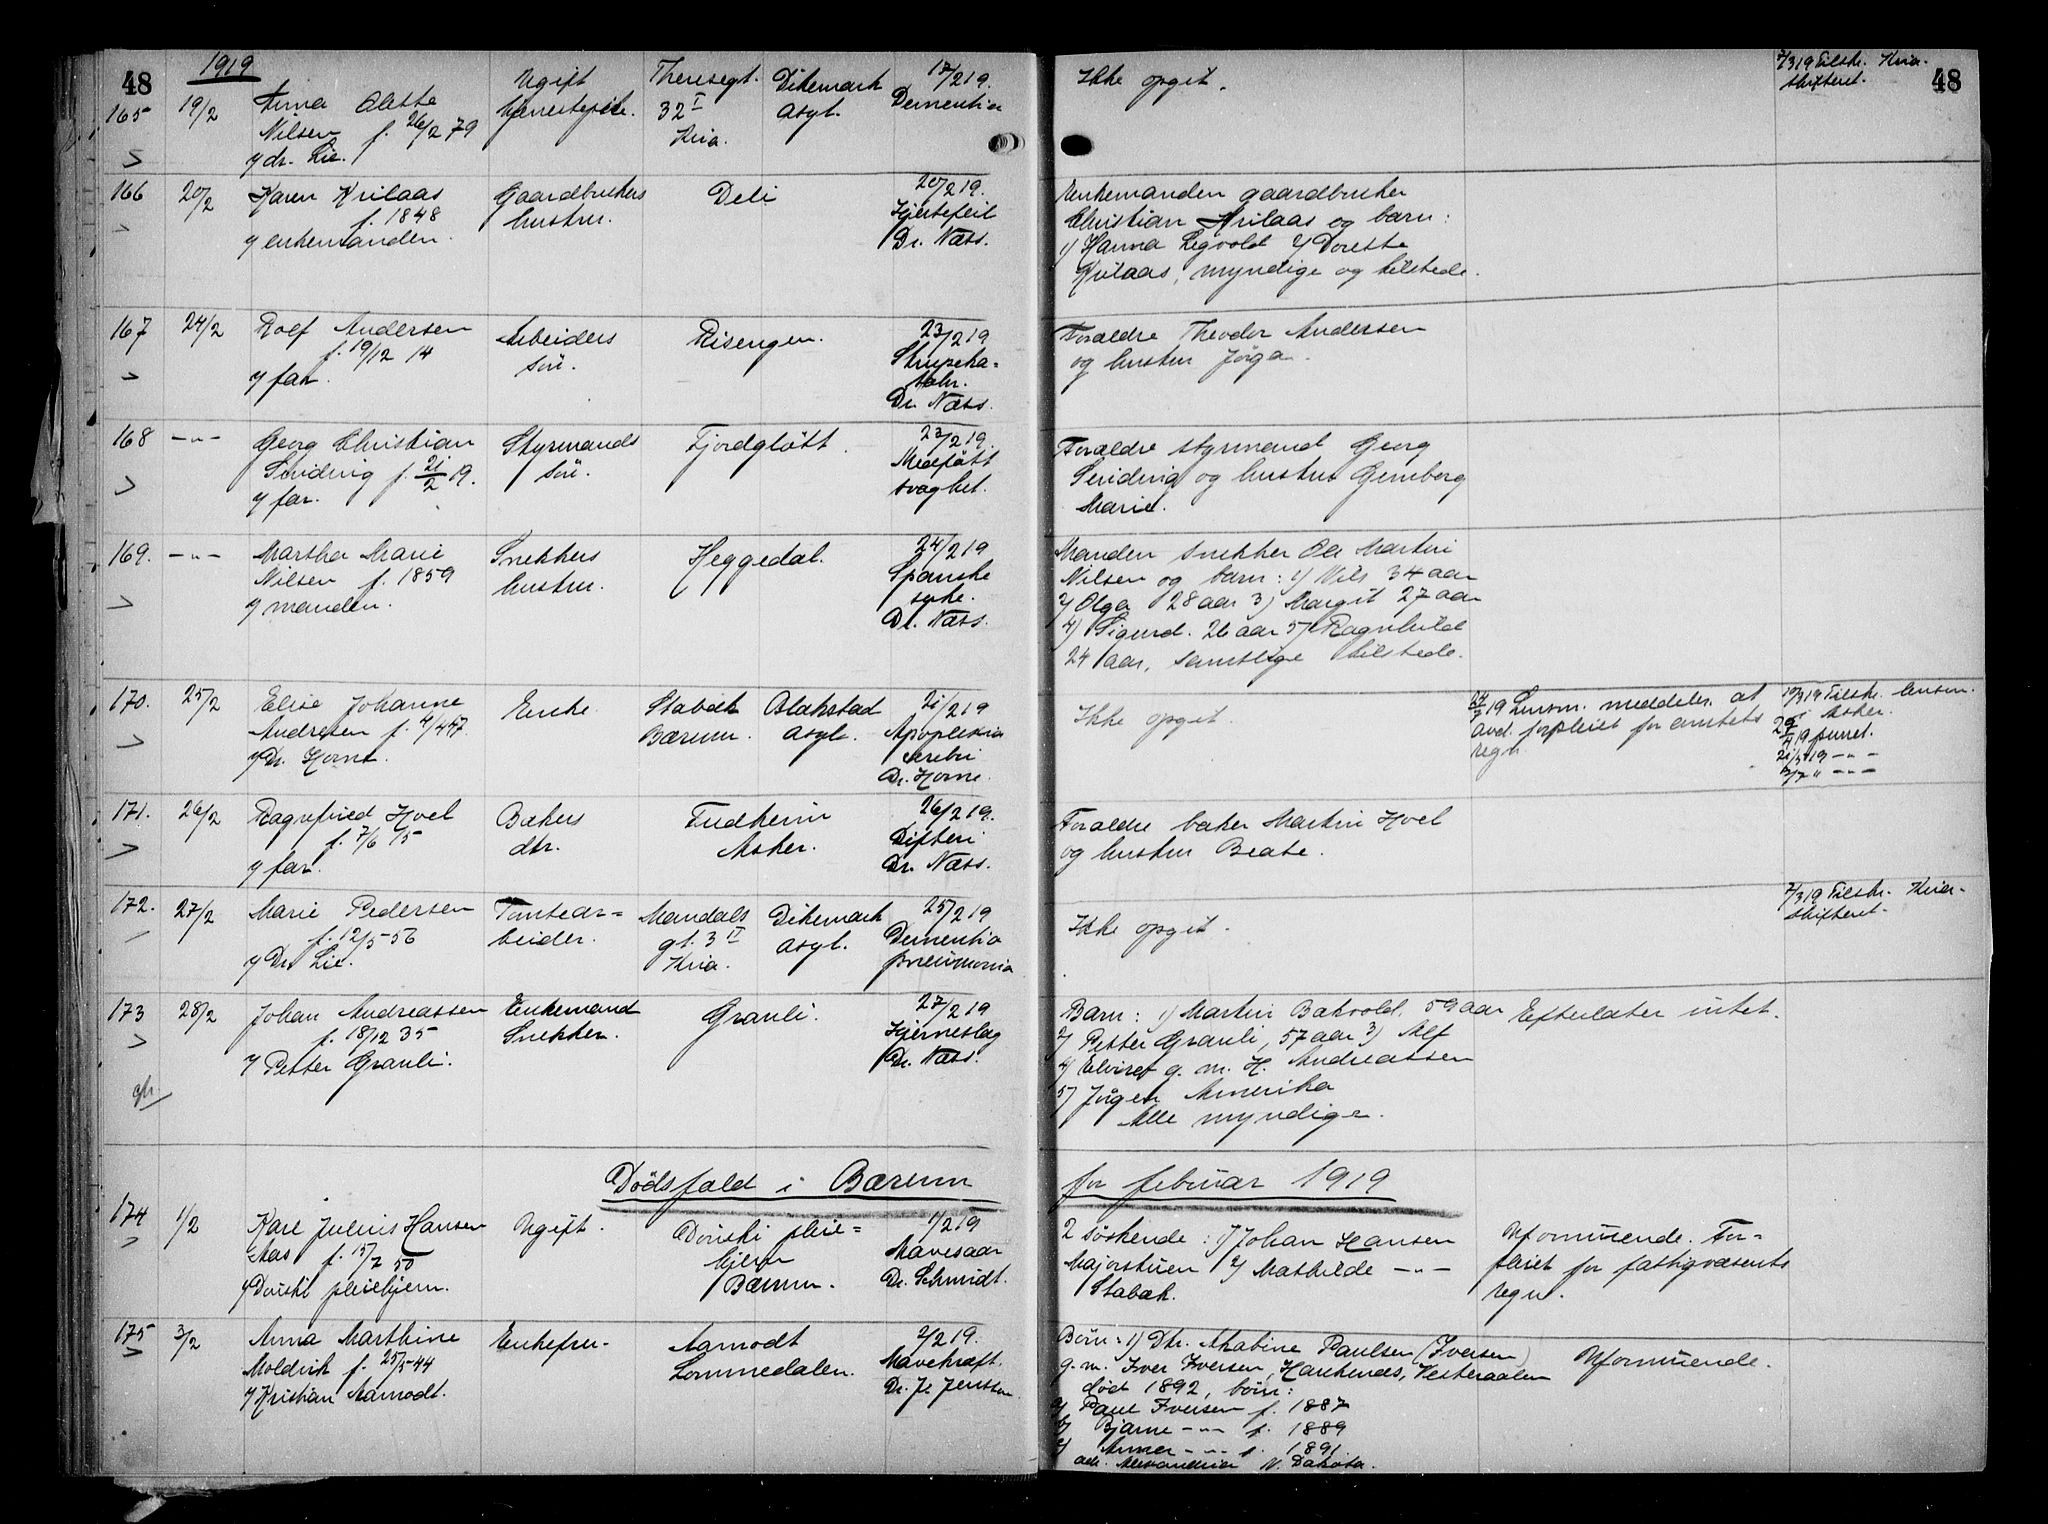 48
1919
165 19/2 Anna Olette Nilsen f. 26/2 79
y dr. Lie.
Ugift
Theresegt.
32 I
Kria.
Dikemark
asyl.
17/2 19.
Dementia
Ikke opgit.
7/3 19 Tilskr. Kria.
skifteret.
48
166 20/2 Karen Krilaas
f. 1848
y enkemanden.
Gaardbrukers
hustru.
Deli
20/2 19.
Hjertefeil
Dr. Næss.
Enkemanden gaardbruker
Christian Krilaas og barn:
1) Hanna Legvold 2) Dorette
Krilaas, myndige og tilstede.
167 24/2 Rolf Andersen
f. 19/12 14
y far.
Arbeiders
sön.
Risengen.
23/2 19
Strupeka=
tahr.
Dr. Næss.
Forældre Theodor Andersen
og hustru Jörga.
168 -"- Georg Christian
Sinding f. 21/2 19.
y far.
Styrmands
sön.
Fjordgløtt.
23/2 19.
Medfött
svaghet.
Forældre styrmand Georg
Sinding og hustru Gunborg
Marie.
169. -"- Martha Marie
Nilsen f. 1859
y manden.
Snekkers
hustru.
Heggedal.
24/2 19
Spanske
syke.
Dr. Næss.
Manden snekker Ole Martin
Nilsen og barn: 1) Nils 34 aar
2) Olga 28 aar 3) Margit 27 aar
4) Sigurd. 26 aar 5) Ragnhild
24 aar, samtlige tilstede.
170. 25/2 Elise Johanne
Andresen f. 4/4 47.
y Dr. Horne.
Enke.
Stabæk
Bærum.
Blakstad
asyl.
21/2 19
Apoplexia
cerebri
Dr. Horne.
Ikke opgit.
24/7 19 Lensm. meddeler at
avd. forpleiet for amtets
regn.
10/3 19 Tilskr. lensm.
i Asker.
29/4 19 purret.
21/5 19 -"-
12/7 " -"-
171. 26/2 Ragnfried Hoel
f. 7/6 15
y far.
Bakers
dtr.
Fudheim
Asker.
26/2 19.
Difteri
Dr. Næss.
Forældre baker Martin Hoel
og hustru Beate.
172. 27/2 Marie Pedersen
f. 12/5 56
y Dr. Lie.
Tomtear=
beider.
Mandals
gt. 3 II
Kria.
Dikemark
asyl.
25/2 19
Dementia
pneumonia
Ikke opgit.
7/3 19 Tilskr. Kria-
skifteret.
173 28/2 Johan Andreassen
f. 18/12 35
y Petter Granli.
Enkemand
Snekker.
Granli.
27/2 19
Hjerneslag
Dr. Næss.
Barn: 1) Martin Bakvold, 59 aar
2) Petter Granli, 57 aar 3) Alf
4) Elvine g. m. H. Andreassen
5) Jörgen Amerika
Alle myndige.
Efterlater intet.
Dödsfald i Bærum for februar 1919
174 1/2 Karl Julius Hansen
Aas f. 15/2 50
y Dönski pleiehjem.
Ugift.
Dönski pleie=
hjem
Bærum.
1/2 19
Mavesaar
Dr. Schmidt.
2 söskende: 1) Johan Hansen
Majorstuen 2) Mathilde -"-
Stabæk.
Uformuende. For=
pleiet for fattigvæsenets
regn.
175 3/2 Anna Marthine
Moldvik f. 25/5 44
y Kristian Aamodt.
Enkefru-
Aamodt
Lommedalen.
2/2 19.
Mavekræft.
Dr. Jenssen.
Börn: 1) Dtr. Mabine Paulsen (Iversen)
g.m. Iver Iversen, Haukenæs, Vesteraalen
död 1892, börn:
a) Paul Iversen f. 1887
b) Bjarne -"- f. 1889
c) Anna -"- f. 1891.
adr. Alexandria N. Dakota.
Uformuende.